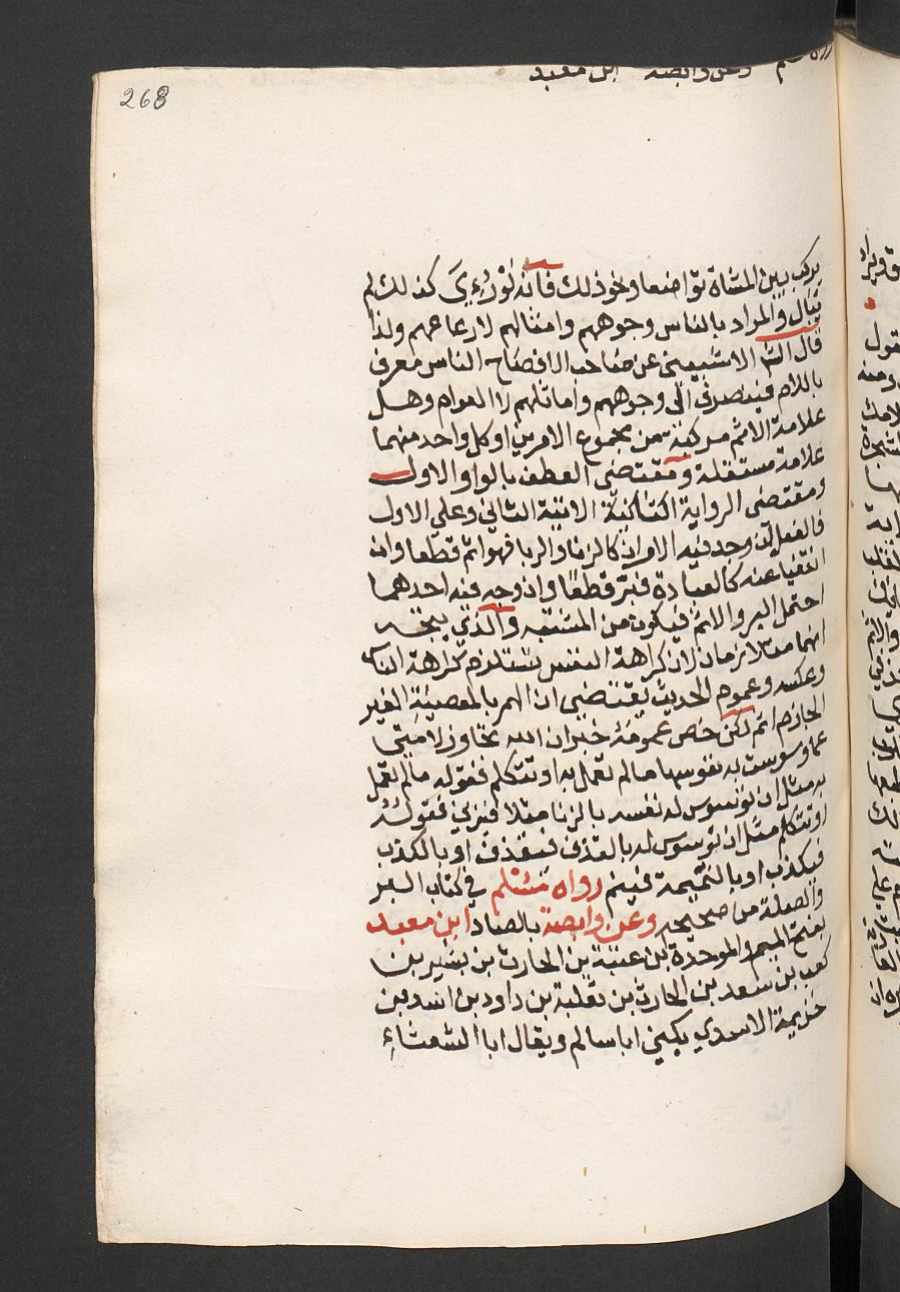 268
رواه مسلم وعن وابصه ابن معبد
يركب بين المشاة تواضعا ونحوذلك فانه لورءي كذلك لم
يبال والمراد بالناس وجوههم وامثالهم لا رعاعهم ولذا
قال الش الاشبيعثى عن صاحب الافصاح الناس معرف
باللام فينصرف الى وجوههم واماثلهم لا العوام وهل
علامة الاثم مركبة من مجموع الامرين او كل واحد منهما
علامة مستقلة ومقتضى العطف بالواو الاول
ومقتضى الرواية الثانية الاتية الثاني وعلي الاول
فالفعل ان وجد فيه الامران كالزنا والربا فهو اثم قطعا وان
انتفيا عنه كالعبادة فبر قطعا وان وجد فيه احدهما
احتمل البر والاثم فيكون من المشتبه والذي يتجه
انهما متلازمان لان كراهة النفس تستلزم كراهة الناس
وعكسه وعموم الحديث يقتضي ان الهم بالمعصية الغير
الجازم اثم لكن خص عمومه خبر ان الله تجاوز لامتي
عما وسوست به نفوسها مالم تعمل به او تتكلم فقوله مالم تعمل
به مثل ان توسوس له نفسه بالزنا مثلا فيزني فقوله
او تتكلم مثل ان توسوس له بالقذف فيقذف او بالكذب
فيكذب او بالنميمة فينم رواه مسلم في كتاب البر
والصلة من صحيحه وعن وابصة بالصاد ابن معبد
بفتح الميم والموحدة بن عتبة بن الحارث بن بشير بن
كعب بن سعد بن الحارث بن ثعلبة بن داود بن اسد بن
خزيمة الاسدي يكني ابا سالم ويقال ابا الشعثاء